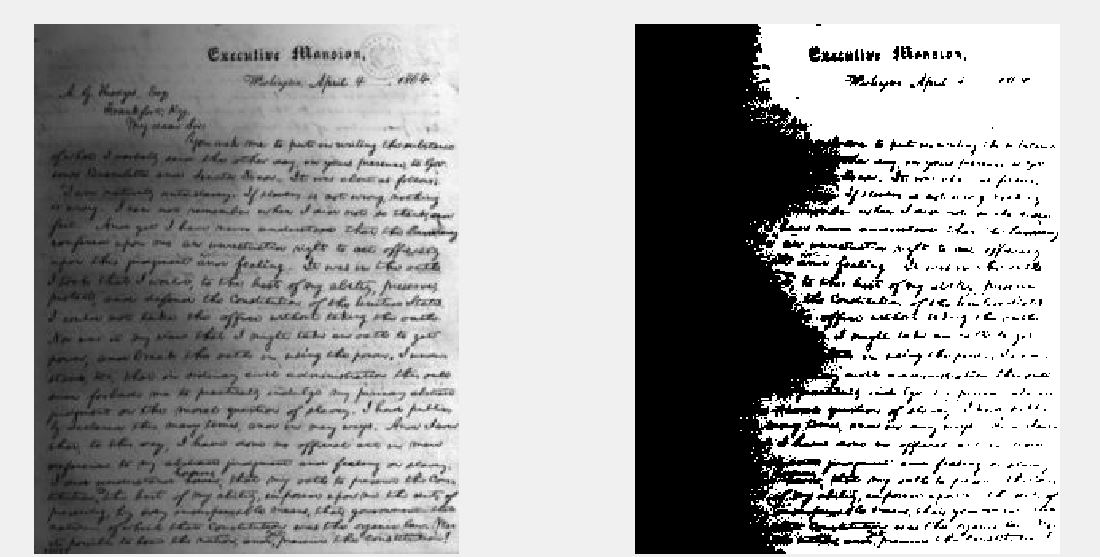 Executive Mansion,
Washington, April 4, 1864.
A. G. Hodges, Esq
Frankfort, Ky.
My dear Sir:
You ask me to put in writing the substance
of what I verbally said the other day, in your presence, to Gov.
Bramlette and Senator Dixon. It was about as follows:
I am naturally anti-slavery. If slavery is not wrong, nothing
is wrong. I can not remember when I did not so think, and
feel. And yet I have never understood that the Presidency
conferred upon me an unrestricted right to act officially
upon this judgment and feeling. It was in the oath
I took that I would, to the best of my ability, preserve,
protect, and defend the Constitution of the United States.
I could not take the office without taking the oath.
Nor was it my view that I might take an oath to get
power, and break the oath in using the power. I understood,
too, that in ordinary civil administration this oath
even forbade me to practically indulge my primary abstract
judgment on the moral question of slavery. I have publicly
declared this many times, and in many ways. And I aver
that, to this day, I have done no official act in mere
deference to my abstract judgment and feeling on slavery.
I did understand however, that my oath to preserve the Con-
stitution to the best of my ability, imposed upon me the duty of
preserving, by every indispensable means, that government, that
nation, of which that Constitution was the organic law. Was
it possible to lose the nation, and yet preserve the Constitution?
Executive Mansion,
Washington, April 4
to put in writing
other day, in your presence, to Gov.
Dixon. It was about as
If slavery is not wrong, nothing
when I did not so
have never understood that the Presidency
an unrestricted right to act officially
and feeling. It was in the oath
to the best of my ability, preserve,
the Constitution of the United States
office without taking the oath
I might take an oath to get
in using the power. I
civil administration this oath
practically indulge my primary
moral question of slavery. I have
many times, and in many ways.
I have done no official act in mere
judgment and feeling on slavery.
that my oath to preserve the Con-
of my ability, imposed upon me the duty of
indispensable means, that government
Constitution was the organic law.
and yet preserve the Constitution